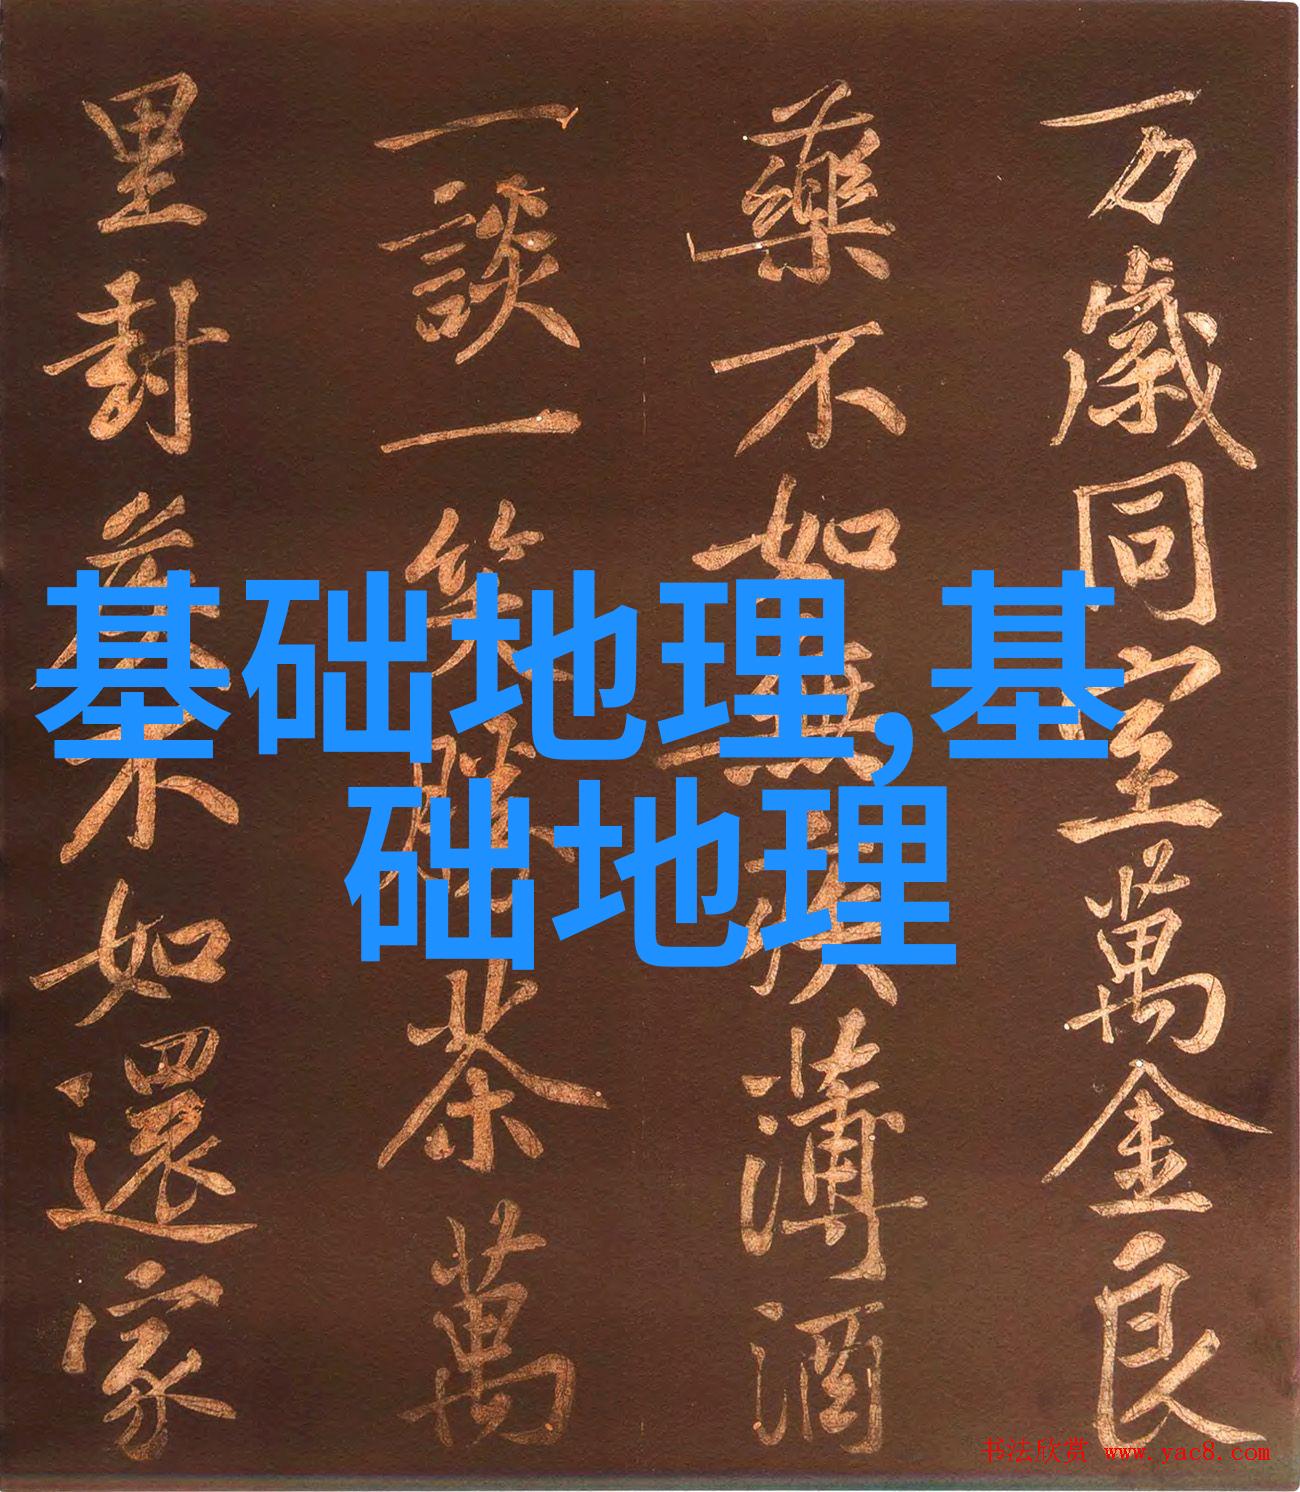 万歲同室萬金良
藥不如無疾薄酒
一談一笑勝茶萬
里封侯不如還家
基础地理,基
础地理
书法欣赏 www.yac8.com